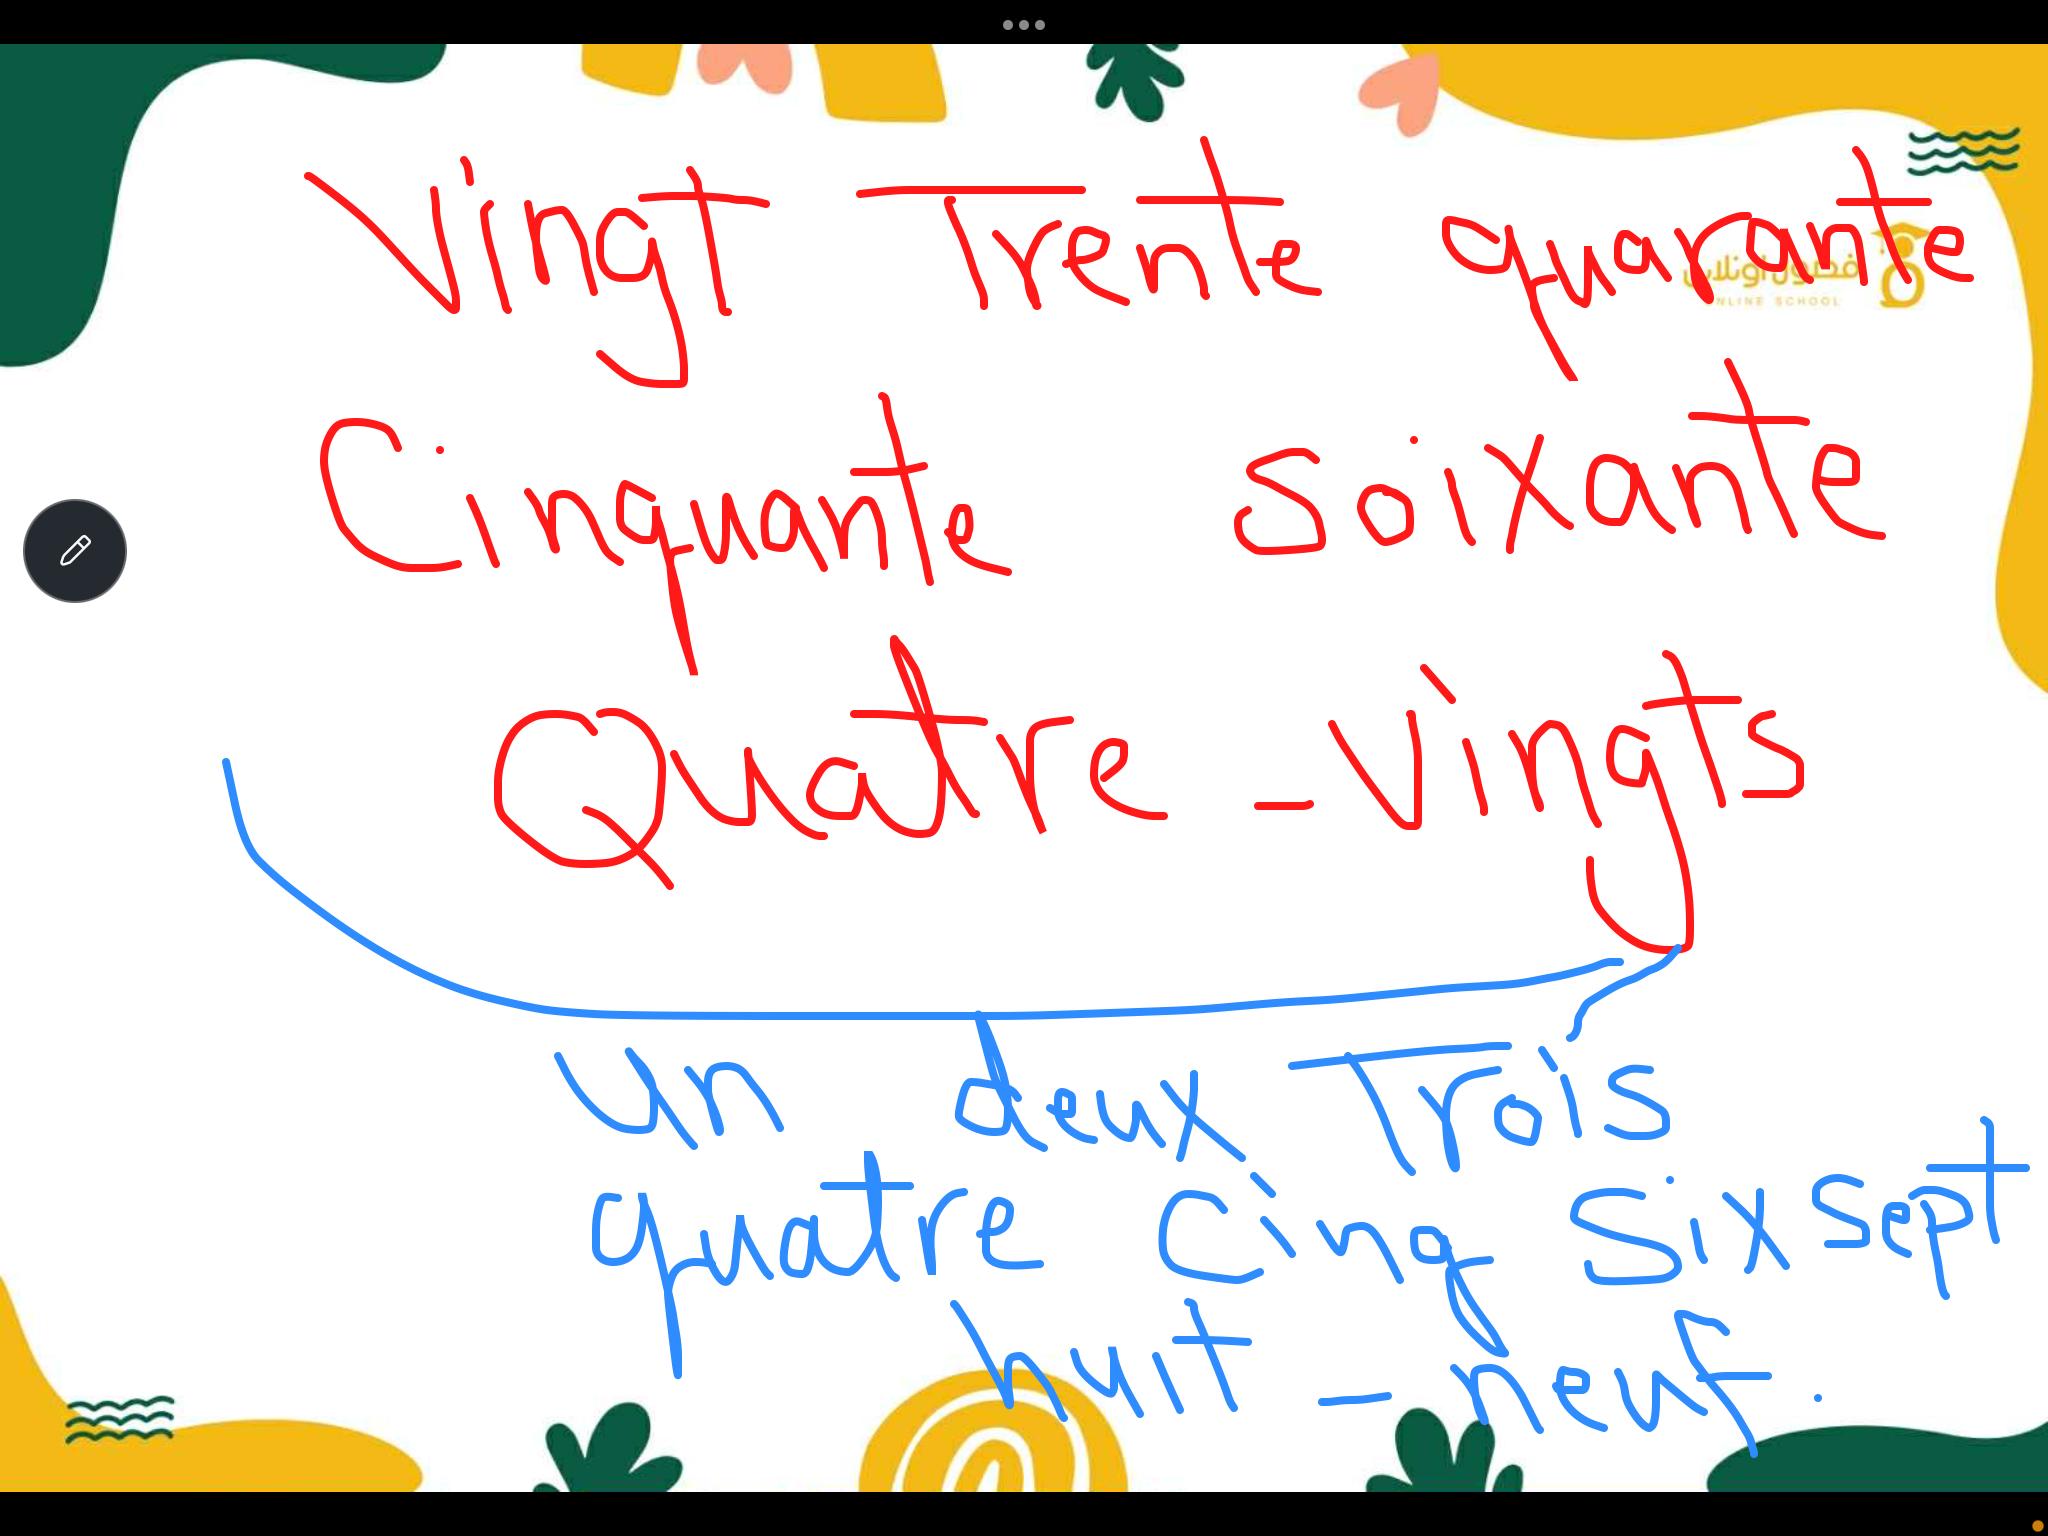 Vingt Trente quarante
فصول أونلاين
ONLINE SCHOOL
Cinquante Soixante
Quatre - Vingts
un deux Trois
quatre Cinq Six Sept
huit - neuf.